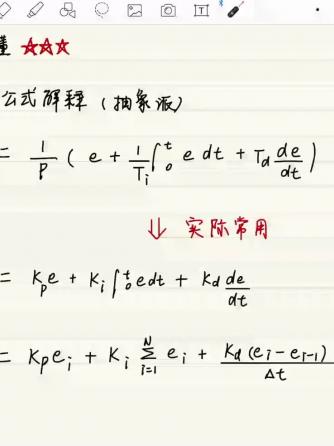 懂 ☆☆☆
公式解释 (抽象派)
= 1/P ( e + 1/Ti ∫₀ᵗ e dt + Td de/dt )
⇓ 实际常用
= Kpe + Ki∫₀ᵗedt + Kd de/dt
= Kpei + Ki ∑ᵢ₌₁ᴺ ei + Kd (ei - ei-1)/Δt